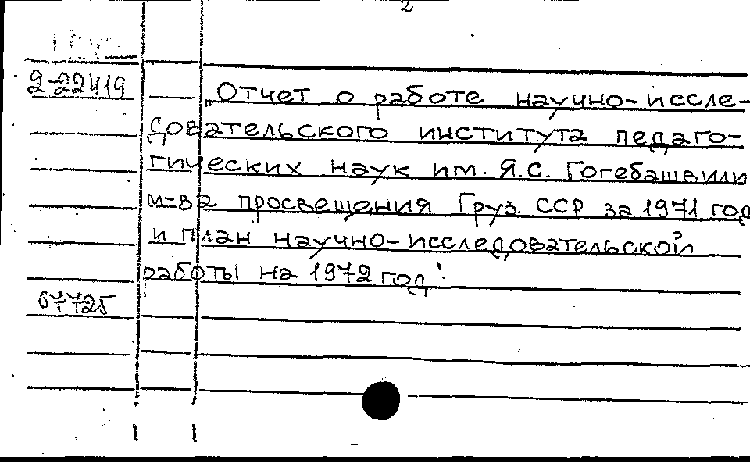 2
2-22419
„Отчет о работе научно-иссле-
довательского института педаго-
гических наук им. Я.С. Гогебашвили
м-ва просвещения Груз. ССР за 1971 год
и план научно-исследовательской
работы на 1972 год"